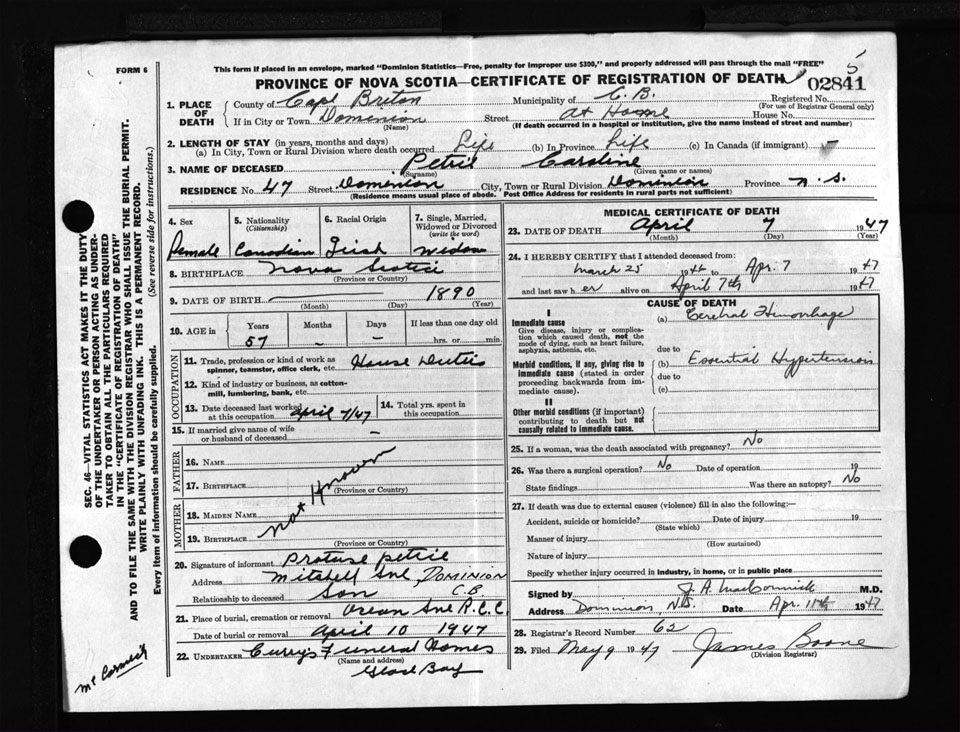 FORM 6
This form if placed in an envelope, marked "Dominion Statistics—Free, penalty for improper use $300," and properly addressed will pass through the mail "FREE"
PROVINCE OF NOVA SCOTIA—CERTIFICATE OF REGISTRATION OF DEATH
5
02841
1. PLACE OF DEATH
County of Cape Breton Municipality of C. B. Registered No.
(For use of Registrar General only)
If in City or Town Domenion Street At Home House No.
(Name) (If death occurred in a hospital or institution, give the name instead of street and number)
2. LENGTH OF STAY (in years, months and days)
(a) In City, Town or Rural Division where death occurred Life (b) In Province Life (c) In Canada (if immigrant)
3. NAME OF DECEASED Petrie Caroline
(Surname) (Given name or names)
RESIDENCE No. 47 Street Domenion City, Town or Rural Division Dominion Province N.S.
(Residence means usual place of abode. Post Office Address for residents in rural parts not sufficient)
4. Sex 5. Nationality (Citizenship) 6. Racial Origin 7. Single, Married, Widowed or Divorced (write the word)
Female Canadian Irish Widow
8. BIRTHPLACE Nova Scotia
(Province or Country)
9. DATE OF BIRTH — 1890
(Month) (Day) (Year)
10. AGE in Years Months Days If less than one day old
57 - - hrs. or min.
OCCUPATION
11. Trade, profession or kind of work as spinner, teamster, office clerk, etc. House Duties
12. Kind of industry or business, as cotton-mill, lumbering, bank, etc.
13. Date deceased last worked at this occupation April 7/47
14. Total yrs. spent in this occupation
15. If married give name of wife or husband of deceased —
FATHER
16. Name
17. Birthplace
(Province or Country)
MOTHER
18. Maiden Name
19. Birthplace
(Province or Country)
not Known
20. Signature of informant Petrie
Address Mitchell Ave, DOMINION
Relationship to deceased Son C.B.
21. Place of burial, cremation or removal Ocean Ave R.C.C.
Date of burial or removal April 10 1947
22. UNDERTAKER Curry's Funeral Homes
(Name and address)
Glace Bay
MEDICAL CERTIFICATE OF DEATH
23. DATE OF DEATH April 7 1947
(Month) (Day) (Year)
24. I HEREBY CERTIFY that I attended deceased from:
March 25 19 to Apr. 7 1947
and last saw her alive on April 7th 1947
CAUSE OF DEATH
I
Immediate cause
Give disease, injury or complication which caused death, not the mode of dying, such as heart failure, asphyxia, asthenia, etc.
(a) Cerebral Hemorrhage
due to
Morbid conditions, if any, giving rise to immediate cause (stated in order proceeding backwards from immediate cause).
(b) Essential Hypertension
due to
(c)
II
Other morbid conditions (if important) contributing to death but not causally related to immediate cause.
25. If a woman, was the death associated with pregnancy? No
26. Was there a surgical operation? No Date of operation 19
State findings Was there an autopsy? No
27. If death was due to external causes (violence) fill in also the following:—
Accident, suicide or homicide? Date of injury 19
(State which)
Manner of injury
(How sustained)
Nature of injury
Specify whether injury occurred in industry, in home, or in public place
Signed by J. A. MacCormick M.D.
Address Dominion N.S. Date Apr. 11th 1947
28. Registrar's Record Number 62
29. Filed May 9 1947 James Boone
(Division Registrar)
SEC. 46—VITAL STATISTICS ACT MAKES IT THE DUTY OF THE UNDERTAKER OR PERSON ACTING AS UNDERTAKER TO OBTAIN ALL THE PARTICULARS REQUIRED IN THE "CERTIFICATE OF REGISTRATION OF DEATH" AND TO FILE THE SAME WITH THE DIVISION REGISTRAR WHO SHALL ISSUE THE BURIAL PERMIT.
WRITE PLAINLY WITH UNFADING INK. THIS IS A PERMANENT RECORD.
Every item of Information should be carefully supplied. (See reverse side for instructions.)
Mc Cormick